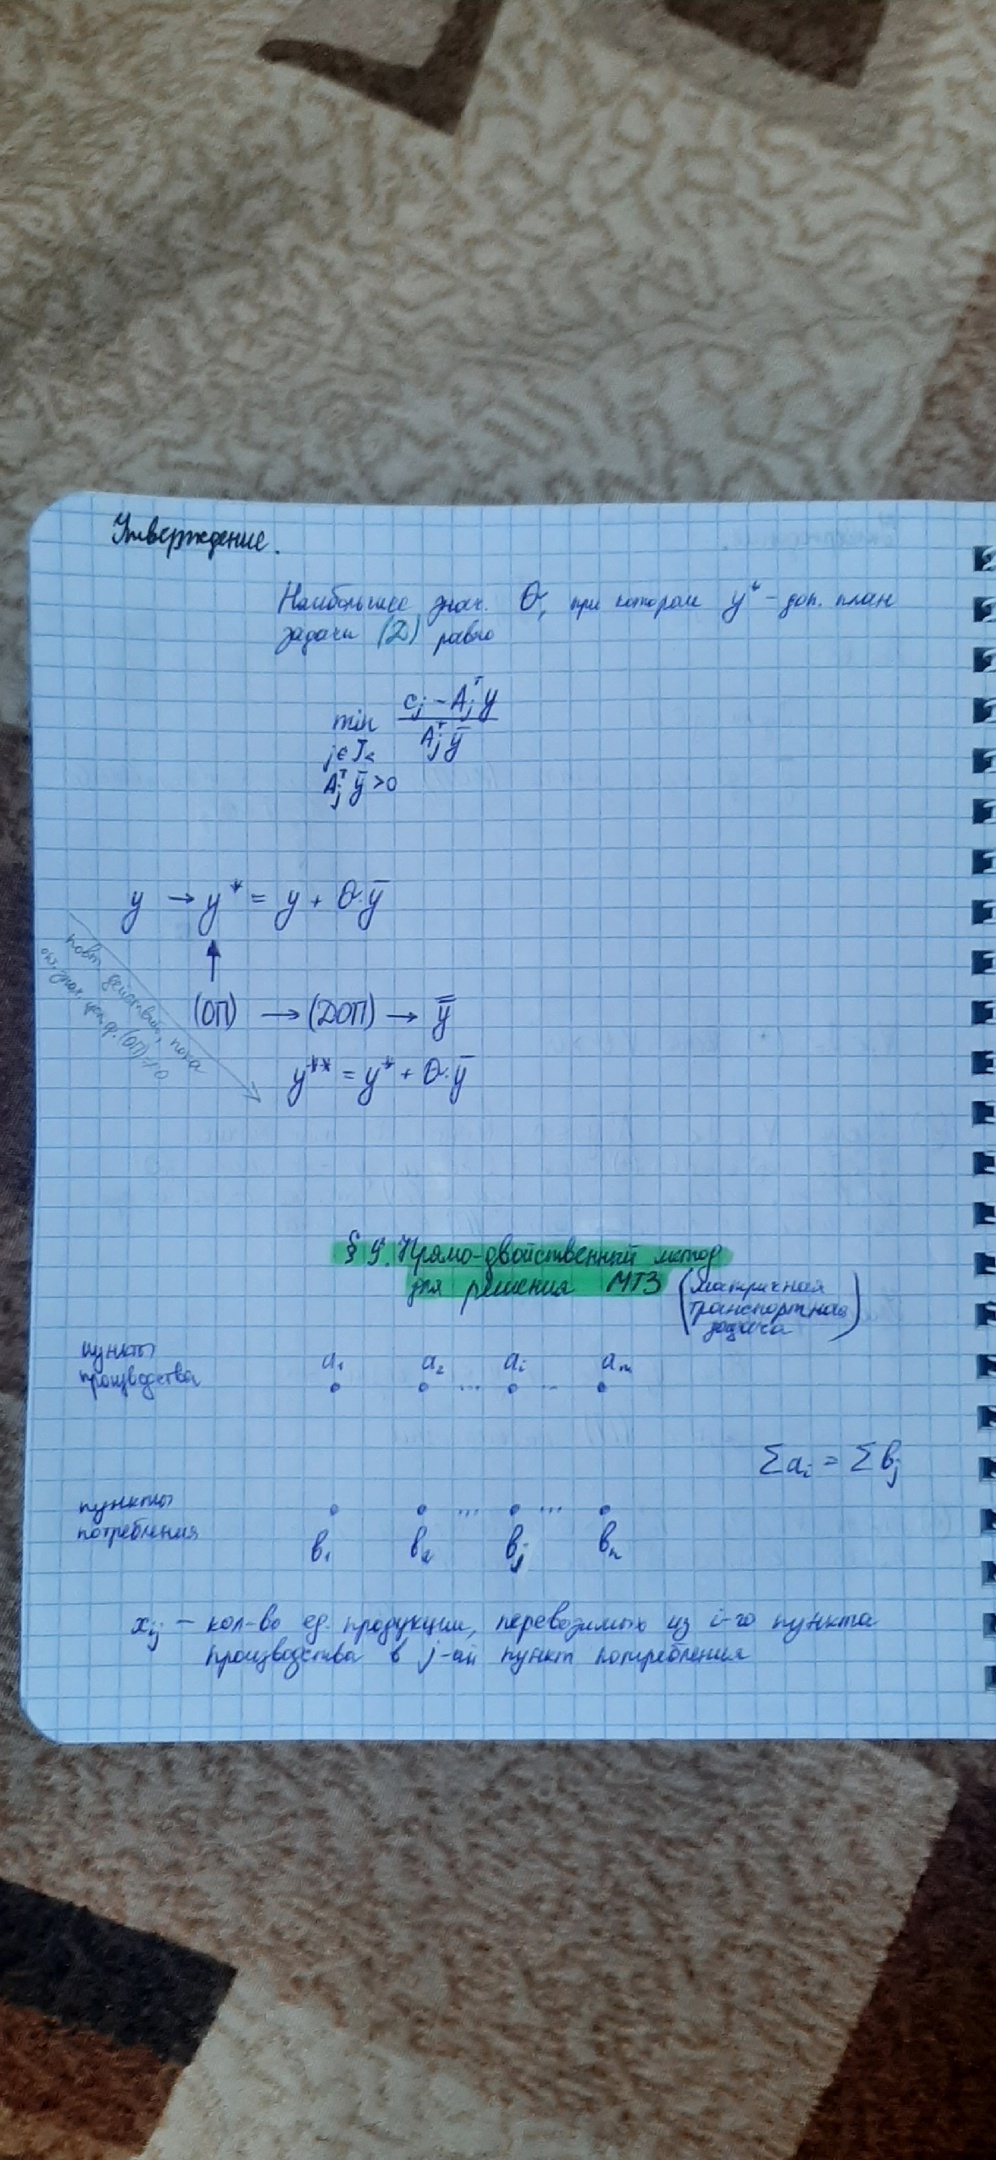 Утверждение.
Наибольшее знач. θ, при котором y* – доп. план
задачи (Д) равно
min (c_j − A_j^T y) / (A_j^T ȳ)
j ∈ J_<
A_j^T ȳ > 0
y → y* = y + θ·ȳ
↑
(ОП) → (ДОП) → ȳ̄
y** = y* + θ·ȳ
повт. действий, пока
опт. знач. цел. ф. (ОП) ≠ 0
§ 9. Прямо-двойственный метод
для решения МТЗ (матричная
транспортная
задача)
пункты
производства
a₁ a₂ ... a_i ... a_m
Σa_i = Σb_j
пункты
потребления
... ...
b₁ b₂ b_j b_n
x_ij – кол-во ед. продукции, перевозимых из i-го пункта
производства в j-ый пункт потребления